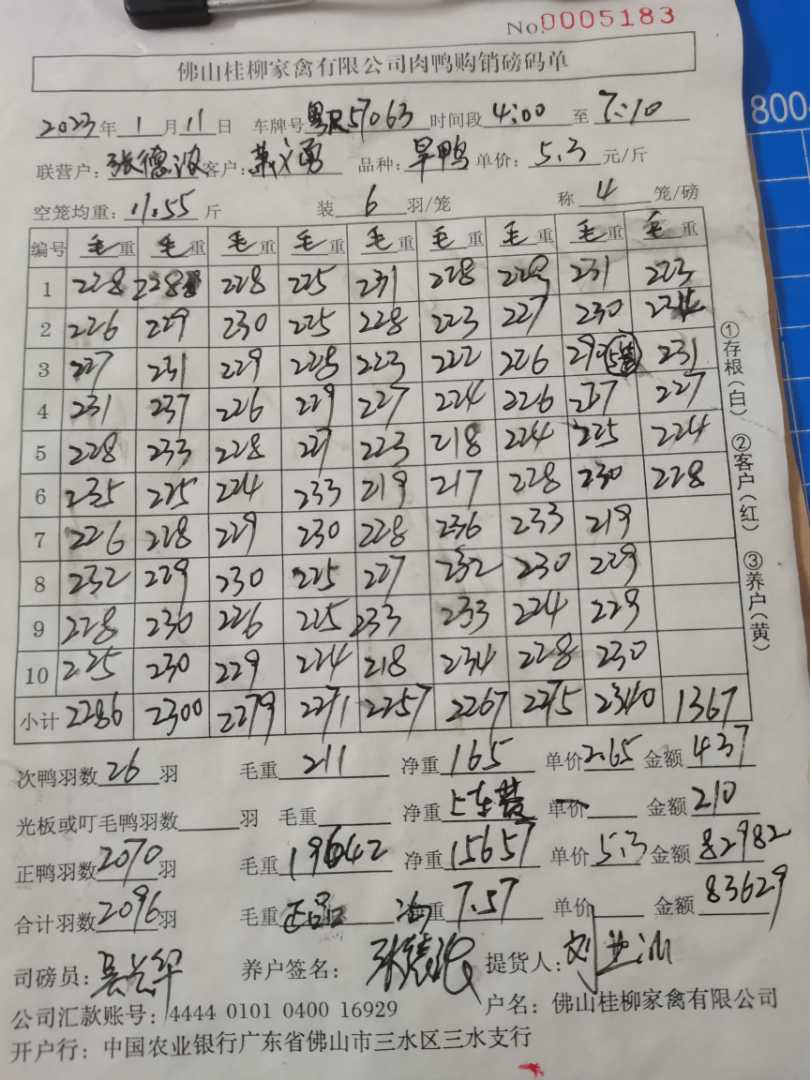 No.0005183
佛山桂柳家禽有限公司肉鸭购销磅码单
2023年 1 月 11 日 车牌号 粤R57063 时间段 4:00 至 7:10
联营户: 张德波 客户: 勇 品种: 旱鸭 单价: 5.3 元/斤
空笼均重: 11.55 斤 装 6 羽/笼 称 4 笼/磅
编号 毛重 毛重 毛重 毛重 毛重 毛重 毛重 毛重 毛重
1 228 228 228 225 231 228 229 231 223
2 226 229 230 225 228 223 227 230 234
3 227 231 229 228 223 222 226 290 231
4 231 237 226 229 227 224 226 227 227
5 228 233 228 227 223 218 224 225 224
6 235 225 224 233 219 217 228 230 228
7 226 228 229 230 228 236 233 219
8 232 229 230 225 227 232 230 229
9 228 230 226 225 233 233 224 229
10 225 230 229 224 218 234 228 230
小计 2286 2300 2279 2271 2257 2267 2275 2340 1367
次鸭羽数 26 羽 毛重 211 净重 165 单价 2.65 金额 437
光板或叮毛鸭羽数 羽 毛重 净重 上车费 单价 金额 210
正鸭羽数 2070 羽 毛重 19642 净重 15657 单价 5.3 金额 82982
合计羽数 2096 羽 毛重 正品 净重 7.57 单价 金额 83629
司磅员: 养户签名: 张德波 提货人: 刘
公司汇款账号: 4444 0101 0400 16929 户名: 佛山桂柳家禽有限公司
开户行: 中国农业银行广东省佛山市三水区三水支行
①存根(白) ②客户(红) ③养户(黄)
800